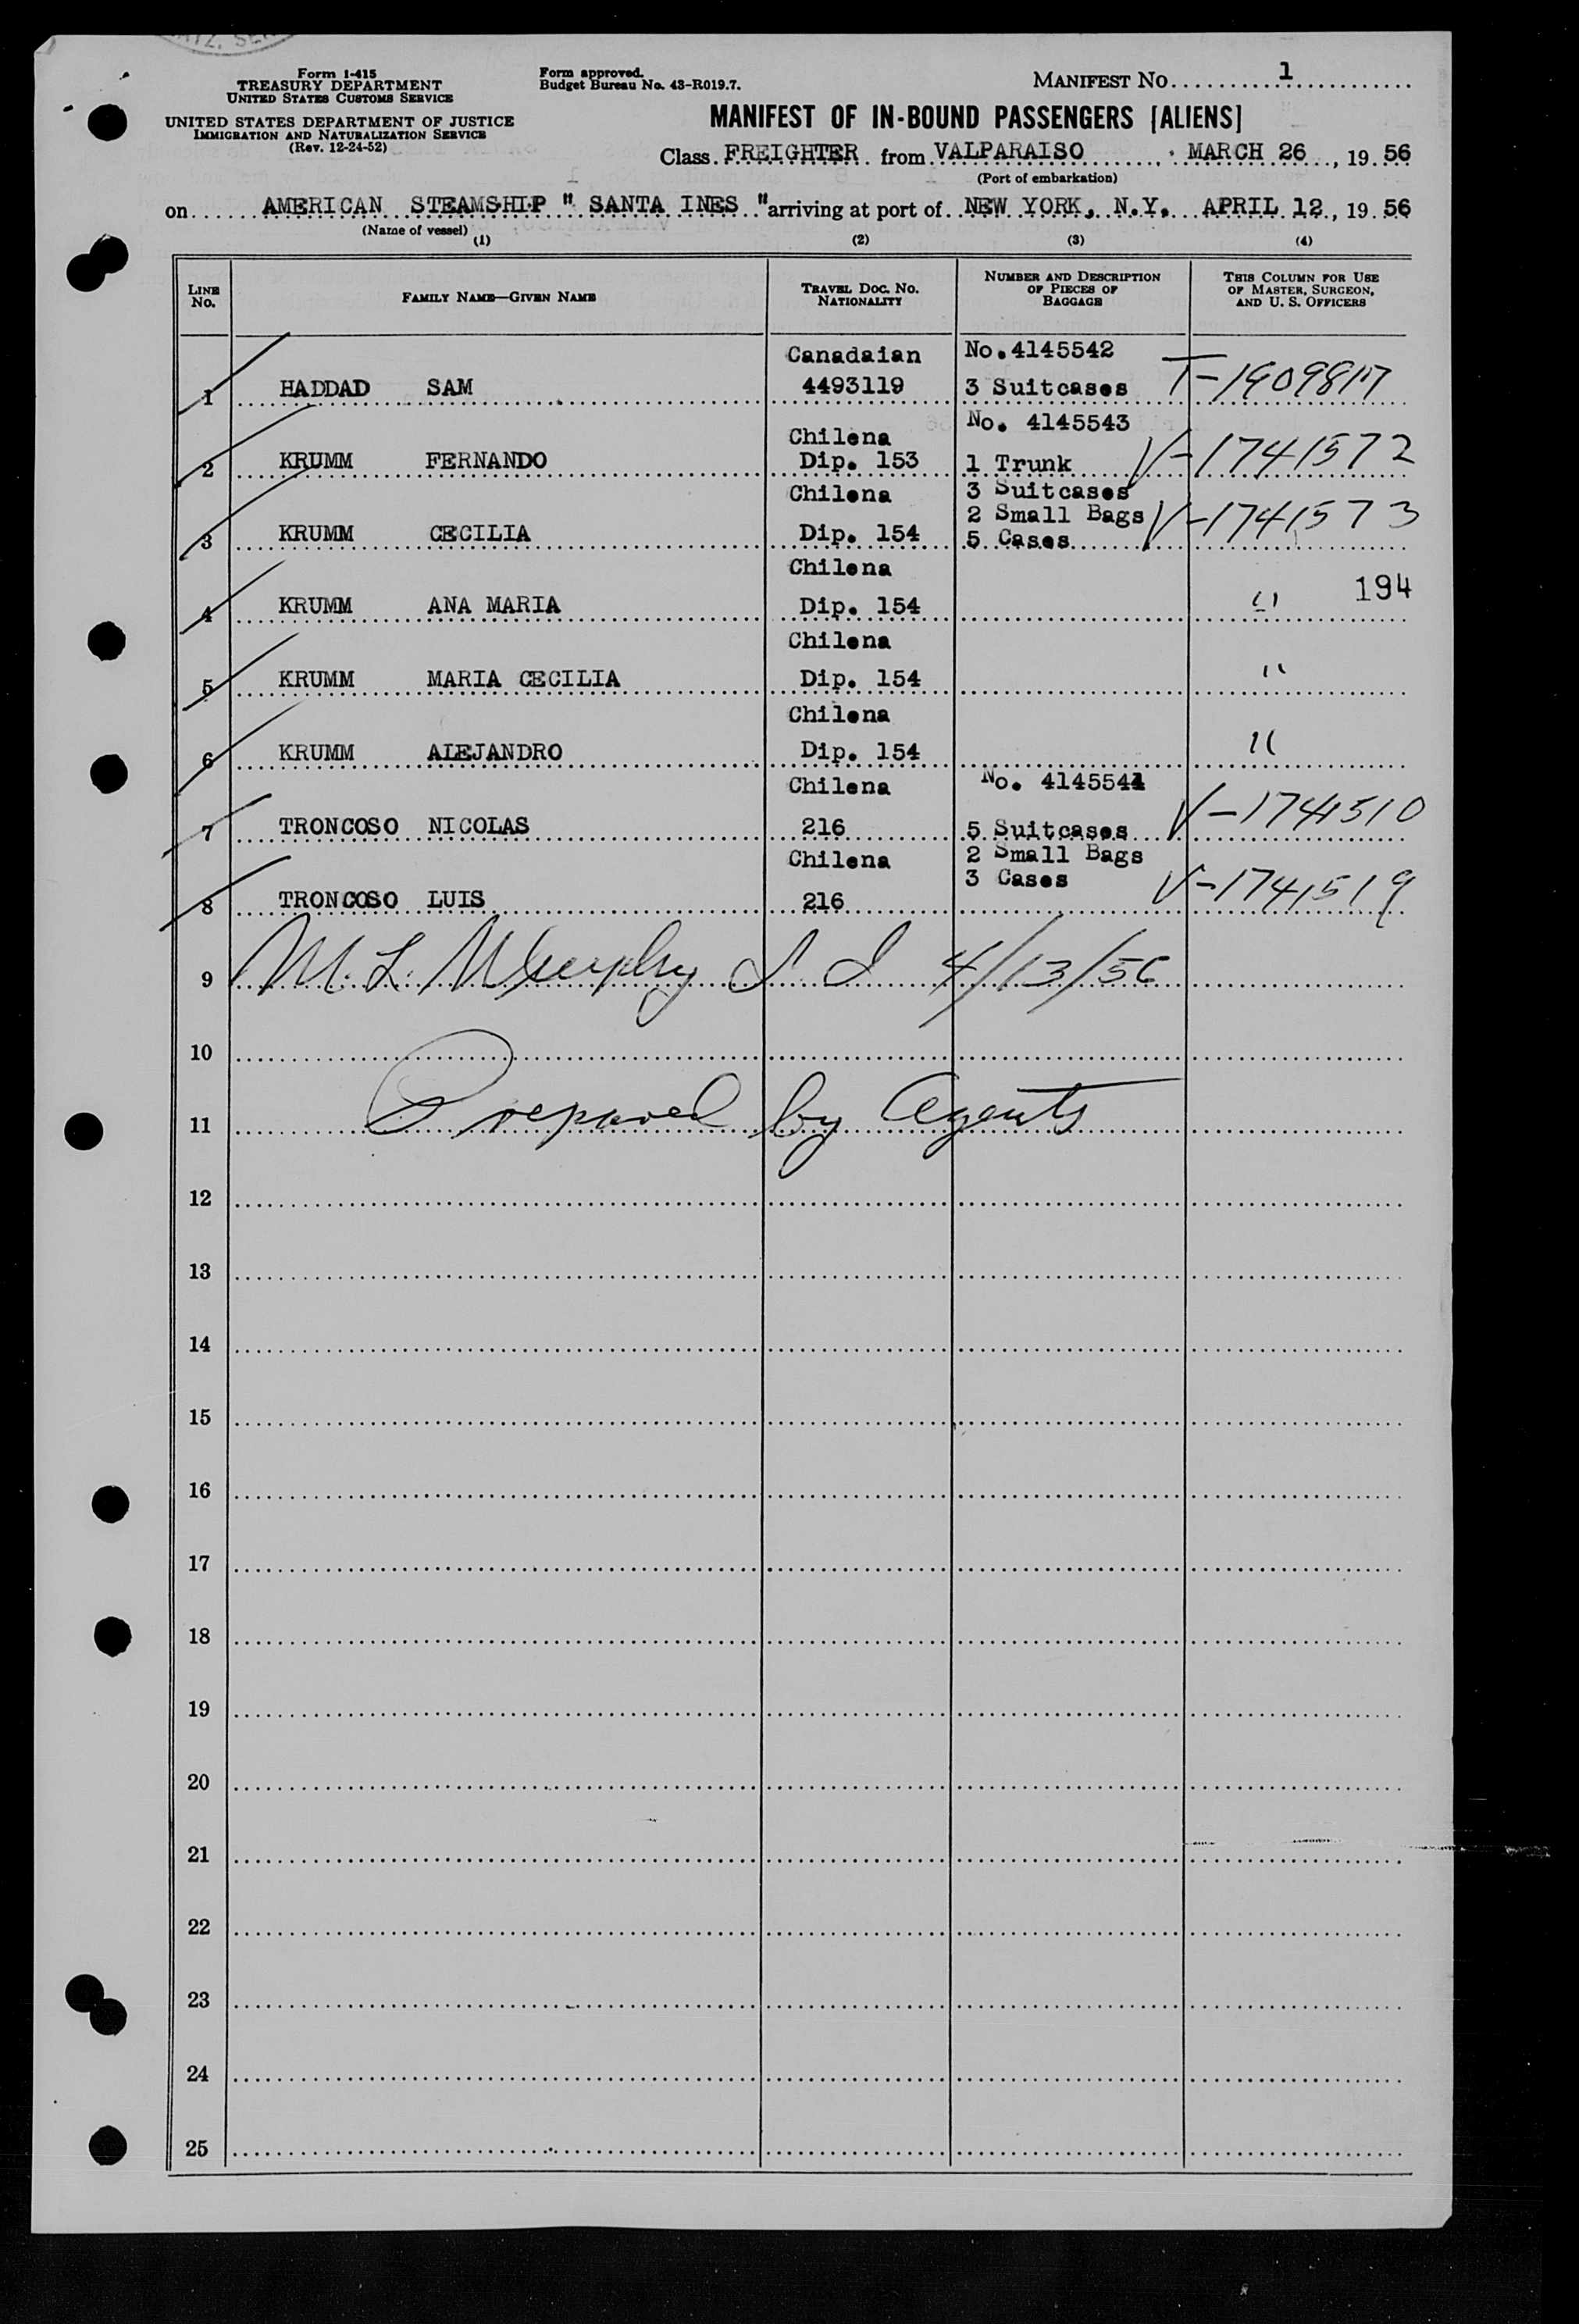 Form I-415
TREASURY DEPARTMENT
UNITED STATES CUSTOMS SERVICE
UNITED STATES DEPARTMENT OF JUSTICE
IMMIGRATION AND NATURALIZATION SERVICE
(Rev. 12-24-52)
Form approved.
Budget Bureau No. 43-R019.7.
MANIFEST NO. 1
MANIFEST OF IN-BOUND PASSENGERS [ALIENS]
Class FREIGHTER from VALPARAISO, MARCH 26, 19 56
(Port of embarkation)
on AMERICAN STEAMSHIP " SANTA INES " arriving at port of NEW YORK, N.Y. APRIL 12, 19 56
(Name of vessel)
(1) (2) (3) (4)
LINE NO.
FAMILY NAME—GIVEN NAME
TRAVEL DOC. NO. NATIONALITY
NUMBER AND DESCRIPTION OF PIECES OF BAGGAGE
THIS COLUMN FOR USE OF MASTER, SURGEON, AND U. S. OFFICERS
Canadaian No.4145542
1 HADDAD SAM 4493119 3 Suitcases
No. 4145543
Chilena
2 KRUMM FERNANDO Dip. 153 1 Trunk V-1741572
Chilena 3 Suitcases
2 Small Bags
3 KRUMM CECILIA Dip. 154 5 Cases V-1741573
Chilena
4 KRUMM ANA MARIA Dip. 154 " 194
Chilena
5 KRUMM MARIA CECILIA Dip. 154 "
Chilena
6 KRUMM ALEJANDRO Dip. 154 "
Chilena No. 4145544
7 TRONCOSO NICOLAS 216 5 Suitcases V-1741510
Chilena 2 Small Bags
3 Cases
8 TRONCOSO LUIS 216 V-1741519
9 M. L. Murphy I I 4/13/56
10
11 Prepared by Agents
12
13
14
15
16
17
18
19
20
21
22
23
24
25